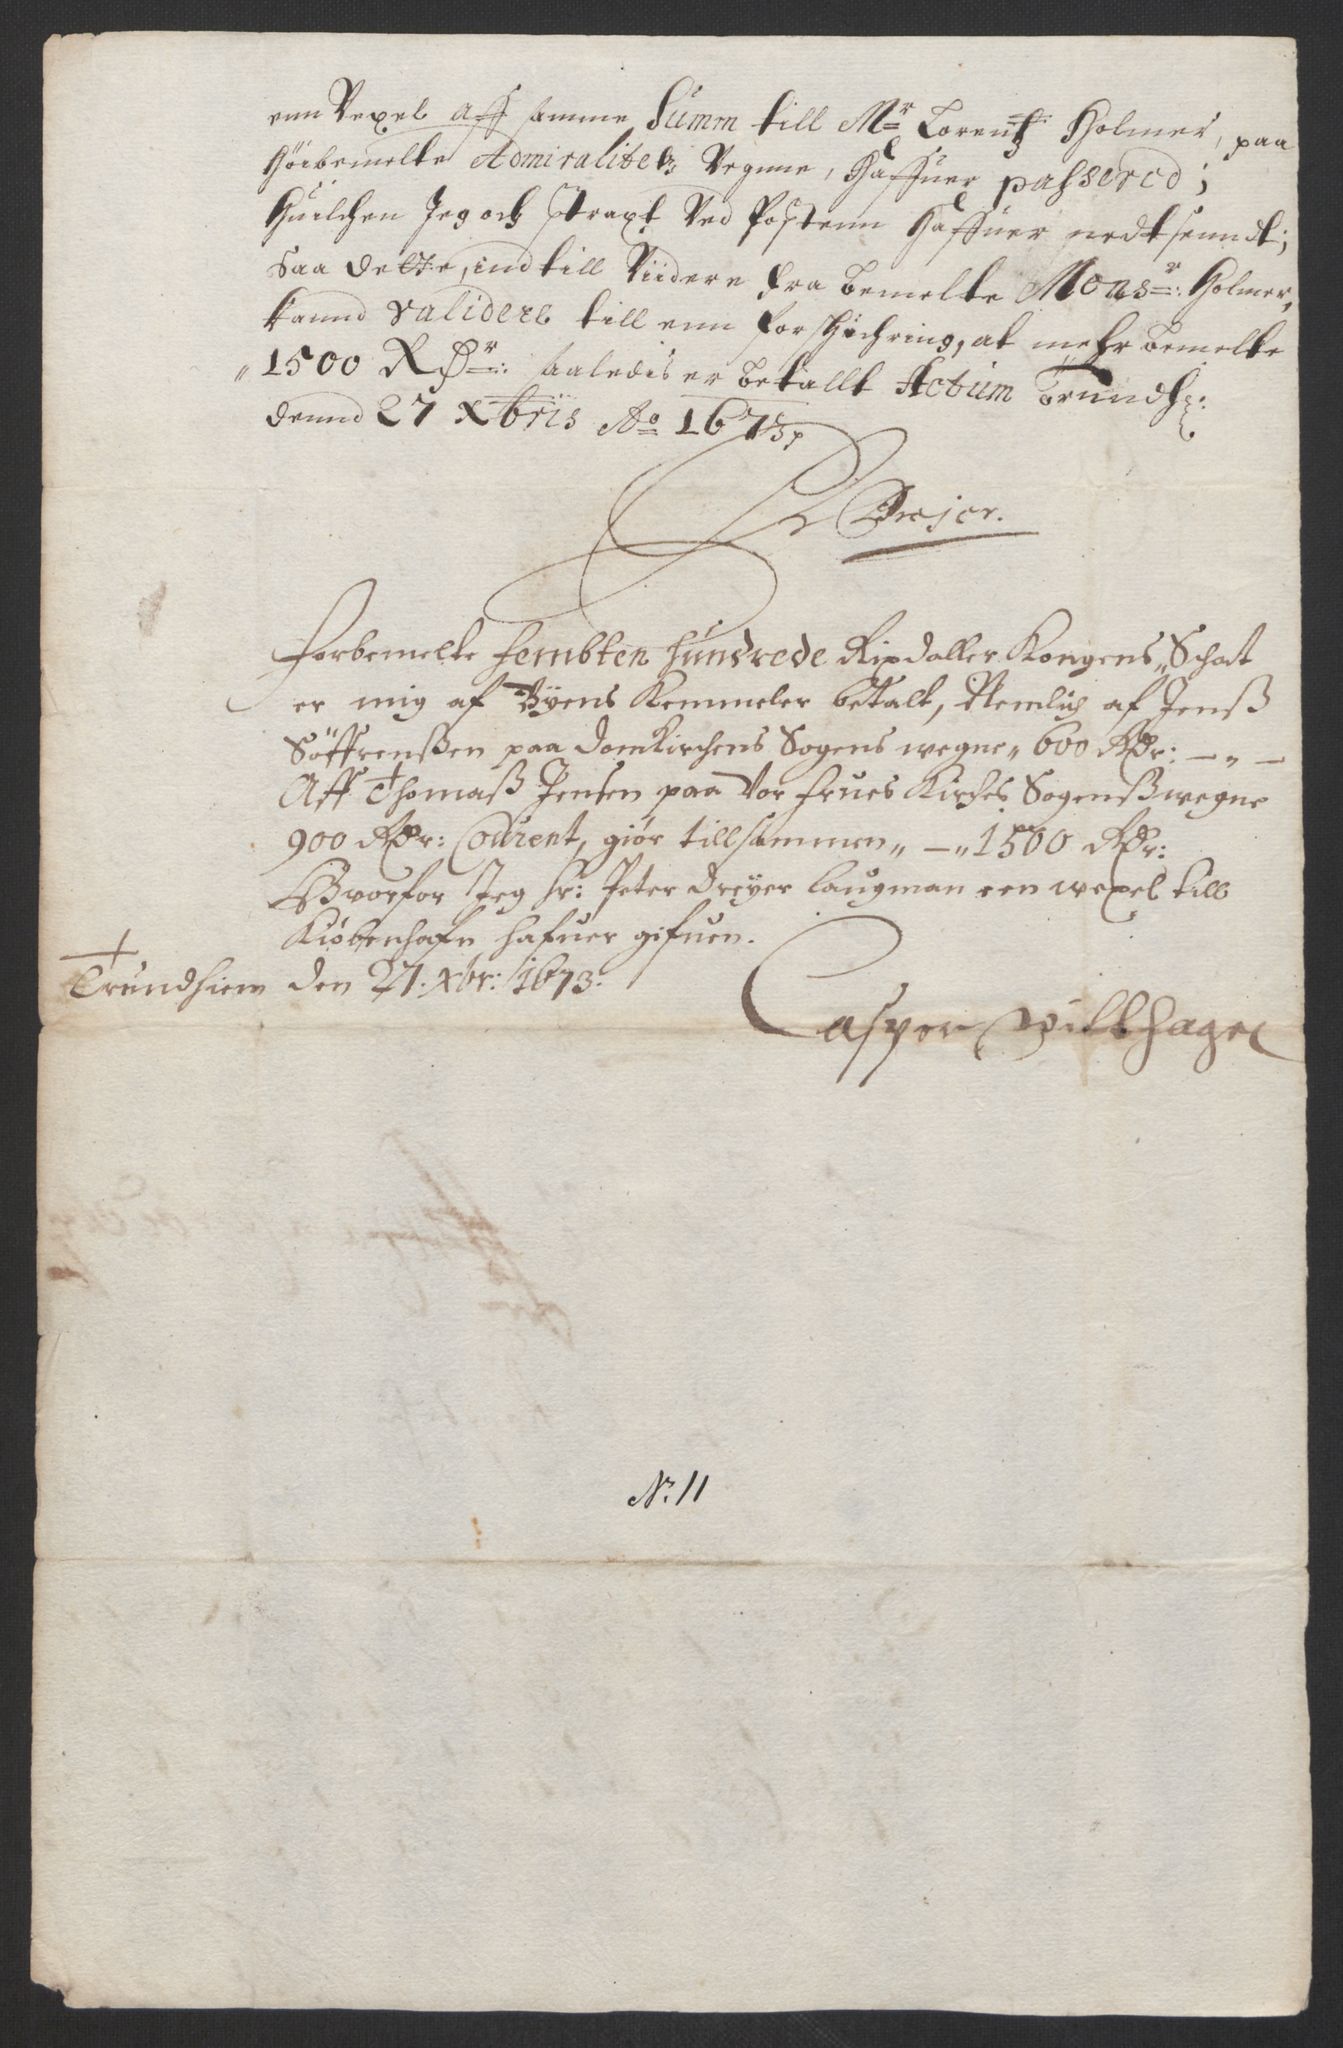 enn Vexel aff samme Summ till Mr Lorentz Holmer, paa
Höibemelte Admiralitetz Vegnne, Haffuer passered;
Huilchen Jeg och straxt Ved Postenn Haffuer nedtsenndt;
Saa dette, ind till Viidere fra bemelte Monsr: Holmer,
kannd validere till enn forsichring, at mehr bemelte
"1500 Rdr: saaledis er betallt Actum Trundh:
dennd 27 Xbris Ao 1673
Drejer.
forbemelte fembten hundrede Rixdaller Kongens Schat
er mig af Byens Kemmeler betalt, Nemlig af Jenß
Söffrenßen paa domkirchens Sogens wegne " 600 Rdr: — " —
Aff Thomaß Jensen paa Vor frues Kirches Sogenß wegne
900 Rdr: Courent, giör tillsammen " — " 1500 Rdr:
Hvorfor Jeg hr: Peter Dreyer laugman een wexel till
Kiöbenhafn hafuer gifuen.
Trundhiem den 27. Xbr: 1673.
Casper Wilthagen
No. 11